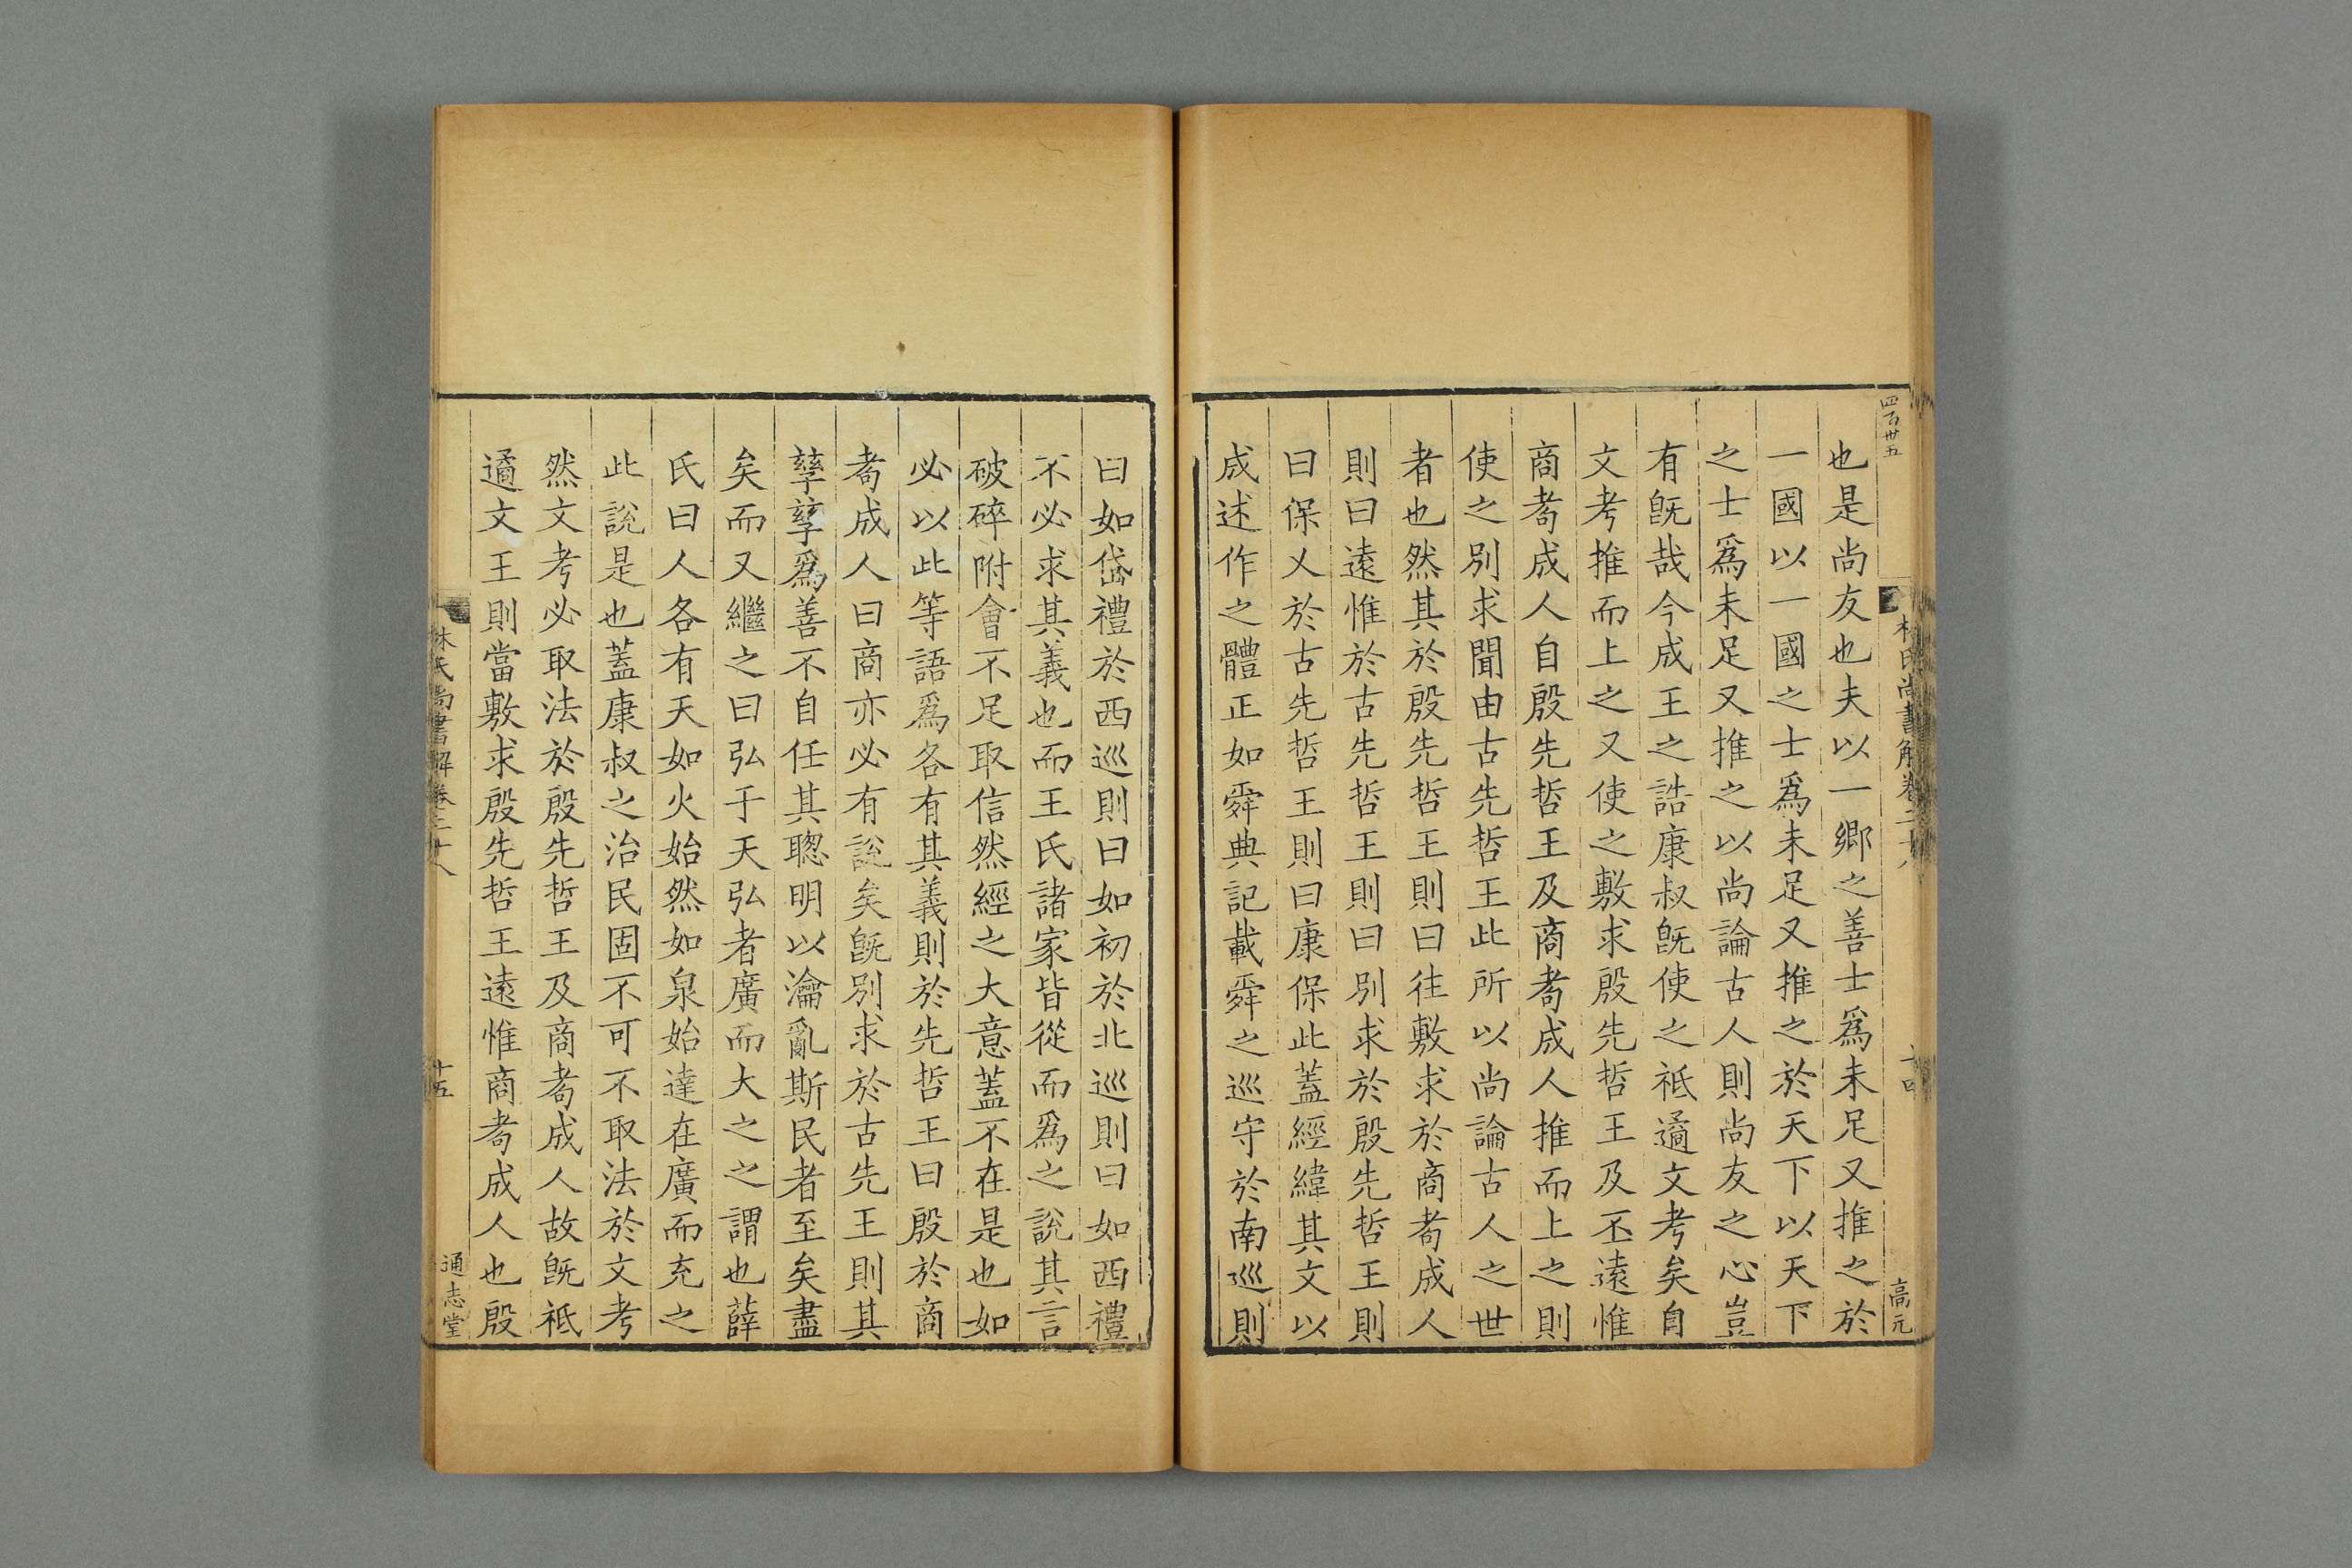 四百卅五
林氏尚書解卷二十八
十四
高元
也是尚友也夫以一鄉之善士爲未足又推之於
一國以一國之士爲未足又推之於天下以天下
之士爲未足又推之以尚論古人則尚友之心豈
有旣哉今成王之誥康叔旣使之祗遹文考矣自
文考推而上之又使之敷求殷先哲王及丕遠惟
商耉成人自殷先哲王及商耉成人推而上之則
使之別求聞由古先哲王此所以尚論古人之世
者也然其於殷先哲王則曰往敷求於商耉成人
則曰遠惟於古先哲王則曰別求於殷先哲王則
曰保乂於古先哲王則曰康保此蓋經緯其文以
成述作之體正如舜典記載舜之巡守於南巡則
曰如岱禮於西巡則曰如初於北巡則曰如西禮
不必求其義也而王氏諸家皆從而爲之說其言
破碎附會不足取信然經之大意蓋不在是也如
必以此等語爲各有其義則於先哲王曰殷於商
耉成人曰商亦必有說矣旣別求於古先王則其
孳孳爲善不自任其聦明以瀹亂斯民者至矣盡
矣而又繼之曰弘于天弘者廣而大之之謂也薛
氏曰人各有天如火始然如泉始達在廣而充之
此說是也蓋康叔之治民固不可不取法於文考
然文考必取法於殷先哲王及商耉成人故旣祗
遹文王則當敷求殷先哲王遠惟商耉成人也殷
林氏尚書解卷二十八
十五
通志堂